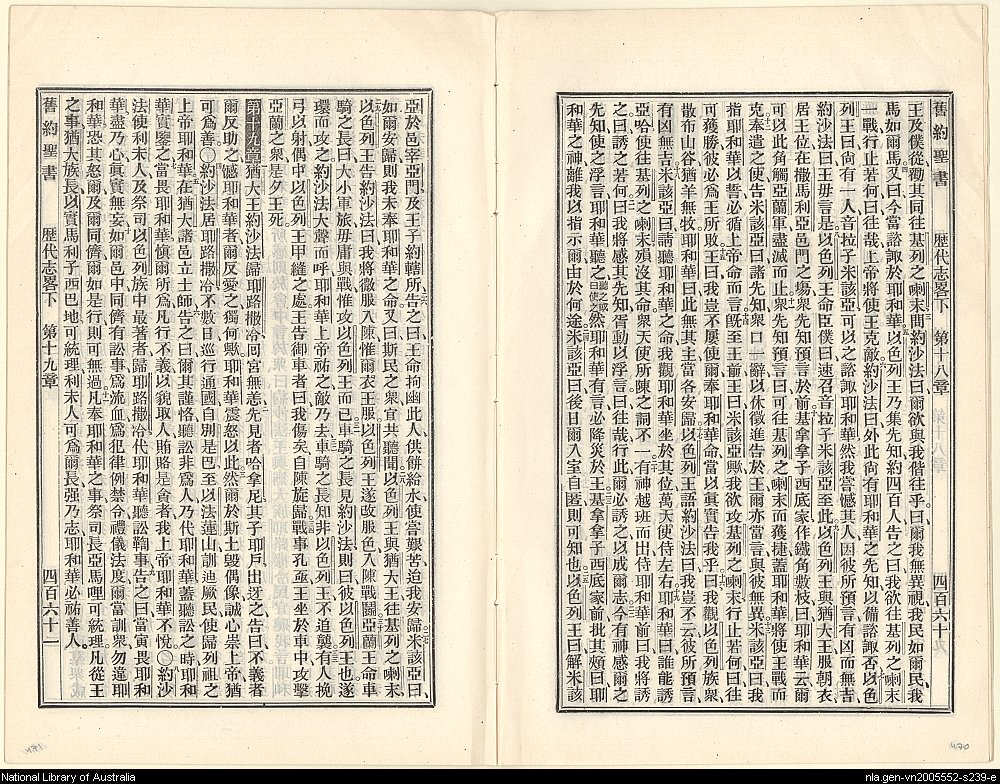 舊約聖書　歷代志畧下　第十八章　四百六十
王及僕從勸其同往基列之喇末間約沙法曰爾欲與我偕往乎曰爾我無異視我民如爾民我
馬如爾馬又曰今當諮諏於耶和華以色列王乃集先知約四百人告之曰我欲往基列之喇末
一戰行止若何曰往哉上帝將使王克敵約沙法曰外此尚有耶和華之先知以備諮諏否以色
列王曰尚有一人音拉子米該亞可以之諮諏耶和華然我嘗憾其人因彼所預言有凶而無吉
約沙法曰王毋言是以色列王命臣僕曰速召音拉子米該亞至此以色列王與猶大王服朝衣
居王位在撒馬利亞邑門之場衆先知預言於前基拿拿子西底家作鐵角數枝曰耶和華云爾
可以此角觸亞蘭軍盡滅而止衆先知預言亦若是曰可往基列之喇末而獲捷蓋耶和華將使王戰而
克奉遣之使告米該亞曰諸先知衆口一辭以休徵進告於王爾亦當言與彼無異米該亞曰我
指耶和華以誓必循上帝命而言旣至王前王曰米該亞歟我欲攻基列之喇末行止若何曰往
可獲勝彼必爲王所敗王曰我豈不屢使爾奉耶和華命當以眞實告我乎曰我觀以色列族衆
散布山谷猶羊無牧耶和華曰此無其主當各安歸以色列王語約沙法曰我豈不云彼所預言
有凶無吉米該亞曰請聽耶和華之命我觀耶和華坐於其位萬天使侍左右耶和華曰誰能誘
亞哈使往基列之喇末殞沒其命衆天使所陳之詞不一有神越班而出侍耶和華前曰我將誘
之曰誘之若何曰我將感其先知胥動以浮言曰往哉行此爾必誘之以成爾志今有神感爾之
先知使之浮言耶和華聽之然耶和華有言必降災於王基拿拿子西底家前批其頰曰耶
和華之神離我以指示爾由於何途米該亞曰後日爾入室自匿則可知也以色列王曰解米該
亞於邑宰亞門及王子約轄所告之曰王命拘幽此人供餅給水使嘗艱苦迨我安歸米該亞曰
如爾安歸則我未奉耶和華之命又曰斯民之衆宜共聽聞以色列王與猶大王往基列之喇末
以色列王告約沙法曰我將微服入陳惟爾衣王服以色列王遂改服色入陳戰鬭亞蘭王命車
騎之長曰大小軍旅毋庸與戰惟攻以色列王而已車騎之長見約沙法則曰彼以色列王也遂
環而攻之約沙法大聲而呼耶和華上帝祐之敵乃去車騎之長知非以色列王不追襲有人挽
弓以射偶中以色列王甲縫之處王告御車者曰我傷矣自陳旋歸戰事孔亟王坐於車中攻擊
亞蘭之衆是夕王死
第十九章猶大王約沙法歸耶路撒冷囘宮無恙先見者哈拿尼其子耶戶出迓之告曰不義者
爾反助之憾耶和華者爾反愛之獨何歟耶和華震怒以此然爾於斯土毀偶像誠心崇上帝猶
可爲善〇約沙法居耶路撒冷不數日巡行通國自別是巴至以法蓮山訓迪厥民使歸列祖之
上帝耶和華在猶大諸邑立士師告之曰爾其謹恪聽訟非爲人乃代耶和華蓋聽訟之時耶和
華實鑒之當畏耶和華愼爾所爲凡行不義以貌取人賄賂是貪者我上帝耶和華不悅〇約沙
法使利未人及祭司以色列族中最著者歸耶路撒冷代耶和華聽訟鞫事告之曰當寅畏耶和
華盡乃心眞實無妄如爾邑中同儕有訟事爲流血爲犯律例禁令禮儀法度爾當訓衆勿違耶
和華恐其怒爾及爾同儕爾如是行則可無過凡奉耶和華之事祭司長亞馬哩可統理凡從王
之事猶大族長以實馬利子西巴地可統理利未人可爲爾長强乃志耶和華必祐善人
舊約聖書　歷代志畧下　第十九章　四百六十一
471
470
National Library of Australia
nla.gen-vn2005552-s239-e